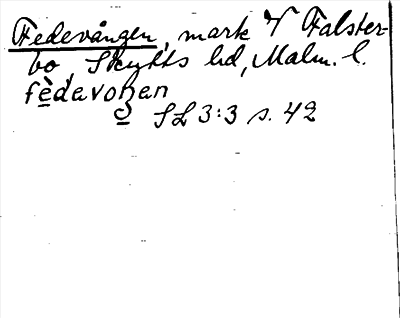 Fedevången, mark V Falster-
bo, Skytts hd, Malm. l.
fèdavoŋen
SL 3:3 s. 42